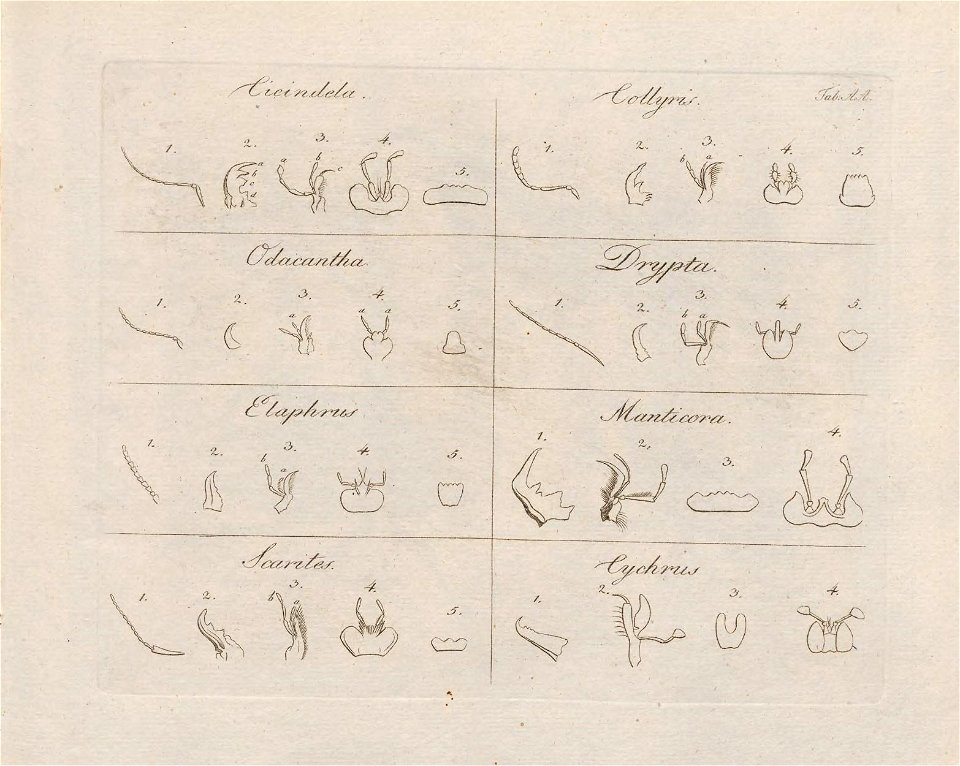 Cicindela.
1. 2. a b c d 3. a b c 4. 5.
Collyris. Tab. A.A.
1. 2. 3. b a 4. 5.
Odacantha
1. 2. 3. a 4. a a 5.
Drypta.
1. 2. 3. b a 4. 5.
Elaphrus
1. 2. 3. b a 4. 5.
Manticora.
1. 2. 3. 4.
Scarites.
1. 2. 3. b a 4. 5.
Cychrus
1. 2. 3. 4.